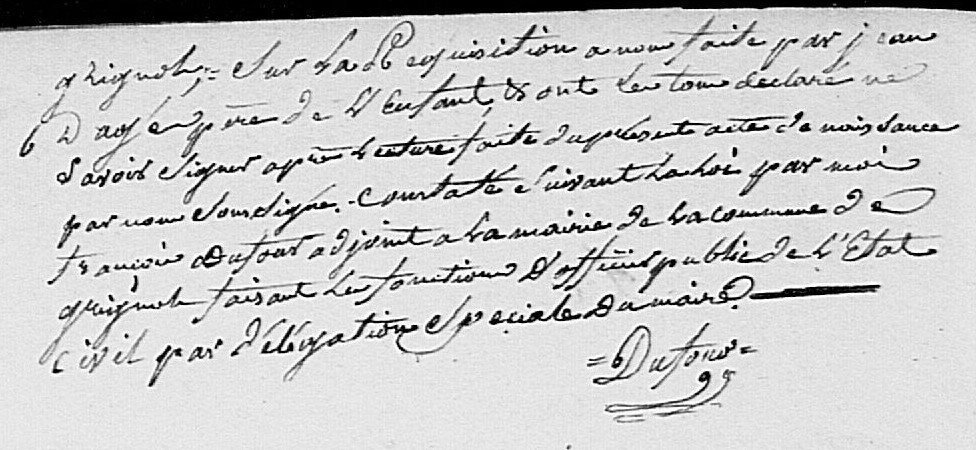 grignols, = Sur La Requisition a nous faite par jean
Dage pere de L'Enfant, & ont Les tem declaré ne
Savoir Signer après Lecture faite du present acte de naissance
par nous Soussigné. Constaté Suivant La Loi par moi
françois Dufour adjoint a La mairie de La commune de
grignols faisant Les fonctions D'officier public de L'Etat
Civil par délégation Speciale Du maire
= Dufour =